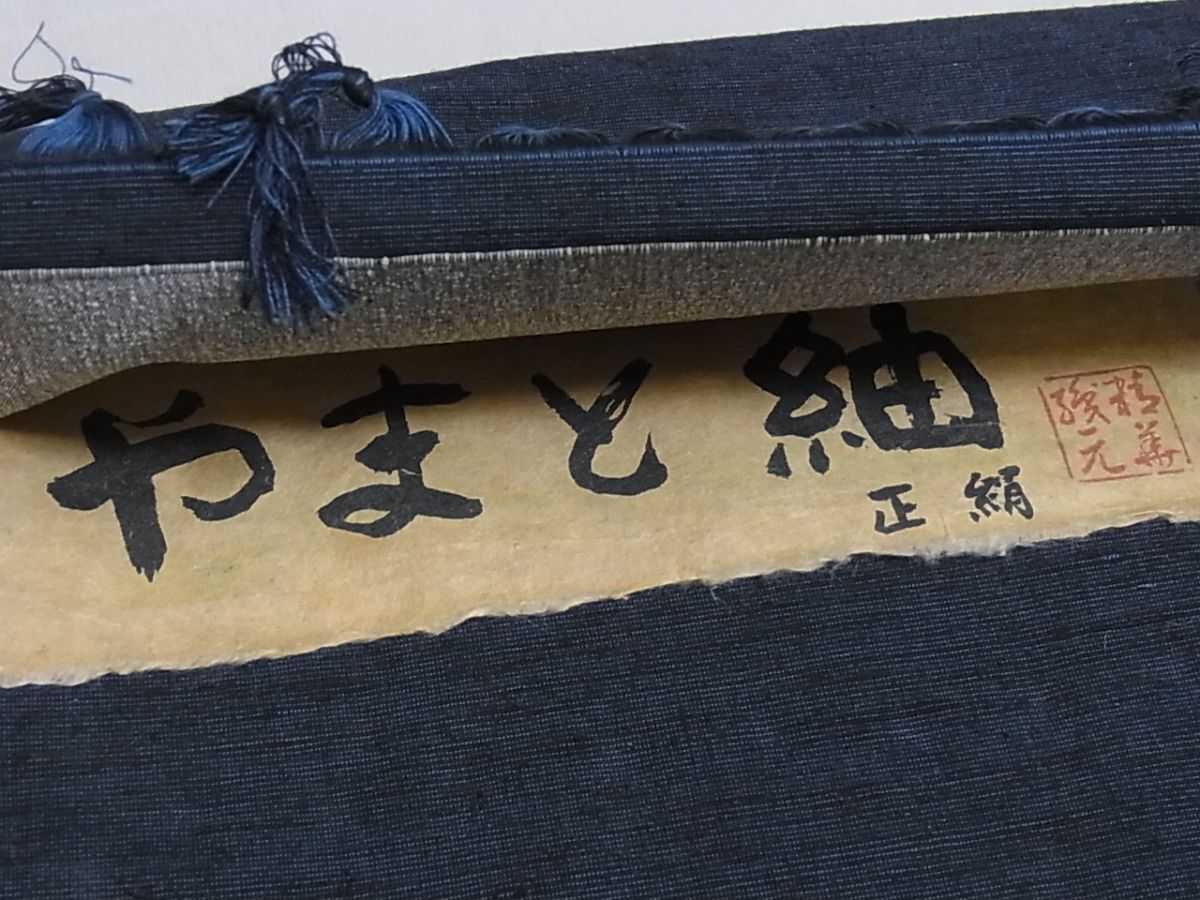 やまと紬
正絹
精華
織元